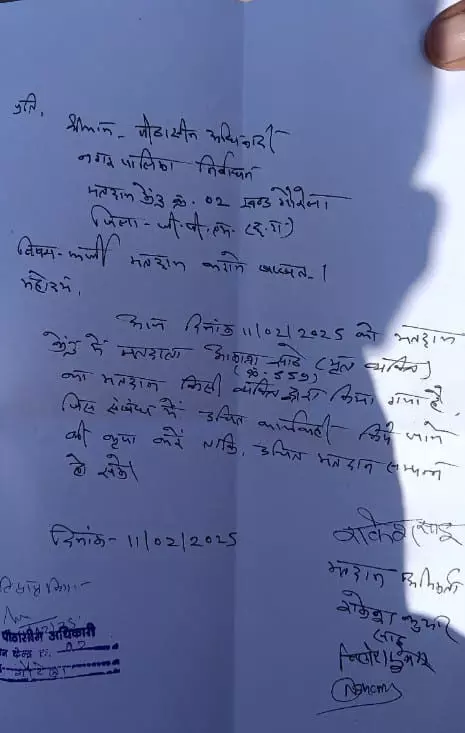 प्रति,
श्रीमान - पीठासीन अधिकारी
नगर पालिका निर्वाचन
मतदान केंद्र क्र. 02 खण्ड गौरेला
जिला - जी.पी.एम. (छ.ग.)
विषय - फर्जी मतदान करने बाबत - ।
महोदय,
आज दिनांक 11/02/2025 को मतदान
केंद्र में मतदाता (मृत व्यक्ति)
(क्र. 559)
का मतदान किसी व्यक्ति द्वारा किया गया है,
जिस संबंध में उचित कार्यवाही किये जाने
की कृपा करें ताकि, उचित मतदान सम्पन्न
हो सके।
दिनांक - 11/02/2025
राकेश साहू
मतदान अभिकर्ता
राकेश कुमार
साहू
पीठासीन अधिकारी
02
गौरेला